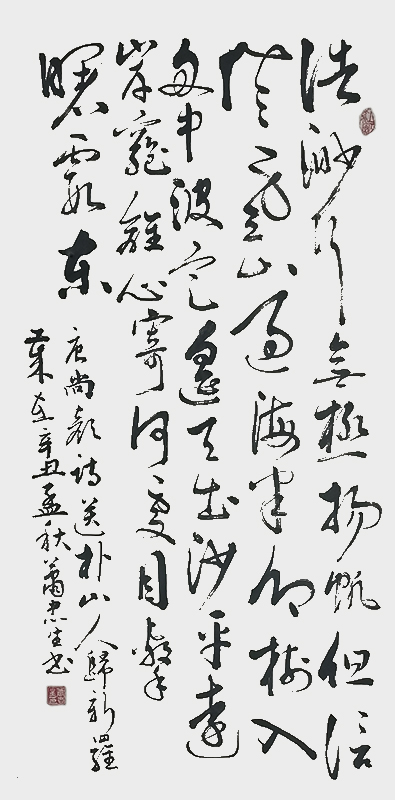 浩渺行無極揚帆但信
風雲山過海半鄉樹入
舟中波定遙天出沙平遠
岸窮離心寄何處目擊
曙霞東
唐尚顏詩送朴山人歸新羅
辛丑孟秋蕭忠生书